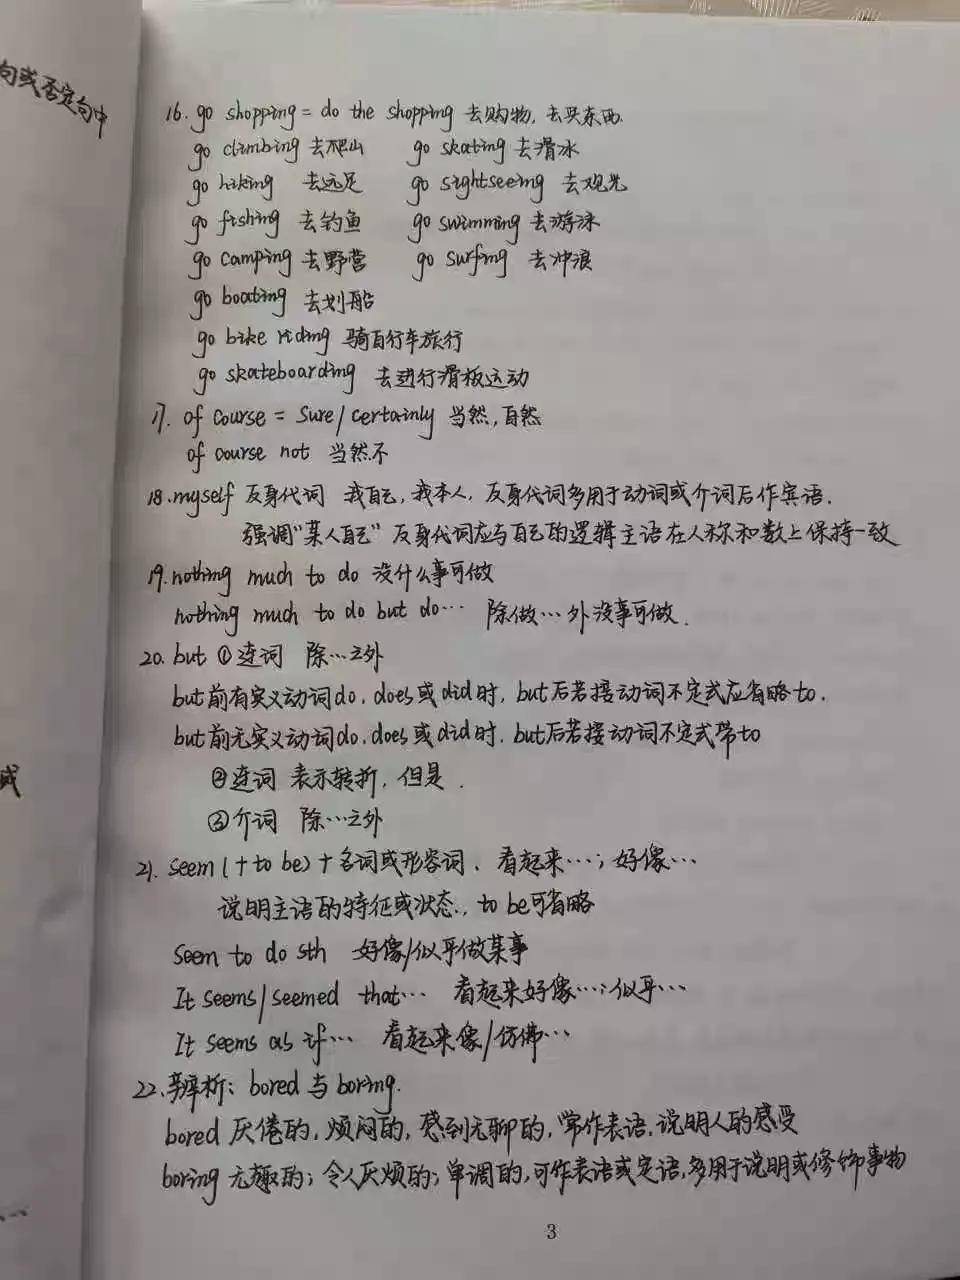 句或否定句中
16. go shopping = do the shopping 去购物, 去买东西.
go climbing 去爬山 go skating 去滑冰
go hiking 去远足 go sightseeing 去观光
go fishing 去钓鱼 go swimming 去游泳
go camping 去野营 go surfing 去冲浪
go boating 去划船
go bike riding 骑自行车旅行
go skateboarding 去进行滑板运动
17. of course = Sure/certainly 当然,自然
of course not 当然不
18. myself 反身代词 我自己,我本人, 反身代词多用于动词或介词后作宾语.
强调“某人自己”反身代词应与自己的逻辑主语在人称和数上保持一致
19. nothing much to do 没什么事可做
nothing much to do but do… 除做…外没事可做.
20. but ①连词 除…之外
but前有实义动词do, does或did时, but后若接动词不定式应省略to.
but前无实义动词do, does或did时, but后若接动词不定式带to
②连词 表示转折, 但是.
③介词 除…之外
21. seem (+to be) + 名词或形容词, 看起来…; 好像…
说明主语的特征或状态., to be可省略
seem to do sth 好像/似乎做某事
It seems/seemed that… 看起来好像…;似乎…
It seems as if… 看起来像/仿佛…
22.辨析: bored 与 boring.
bored 厌倦的, 烦闷的, 感到无聊的, 常作表语, 说明人的感受
boring 无趣的; 令人厌烦的; 单调的, 可作表语或定语, 多用于说明或修饰事物
3